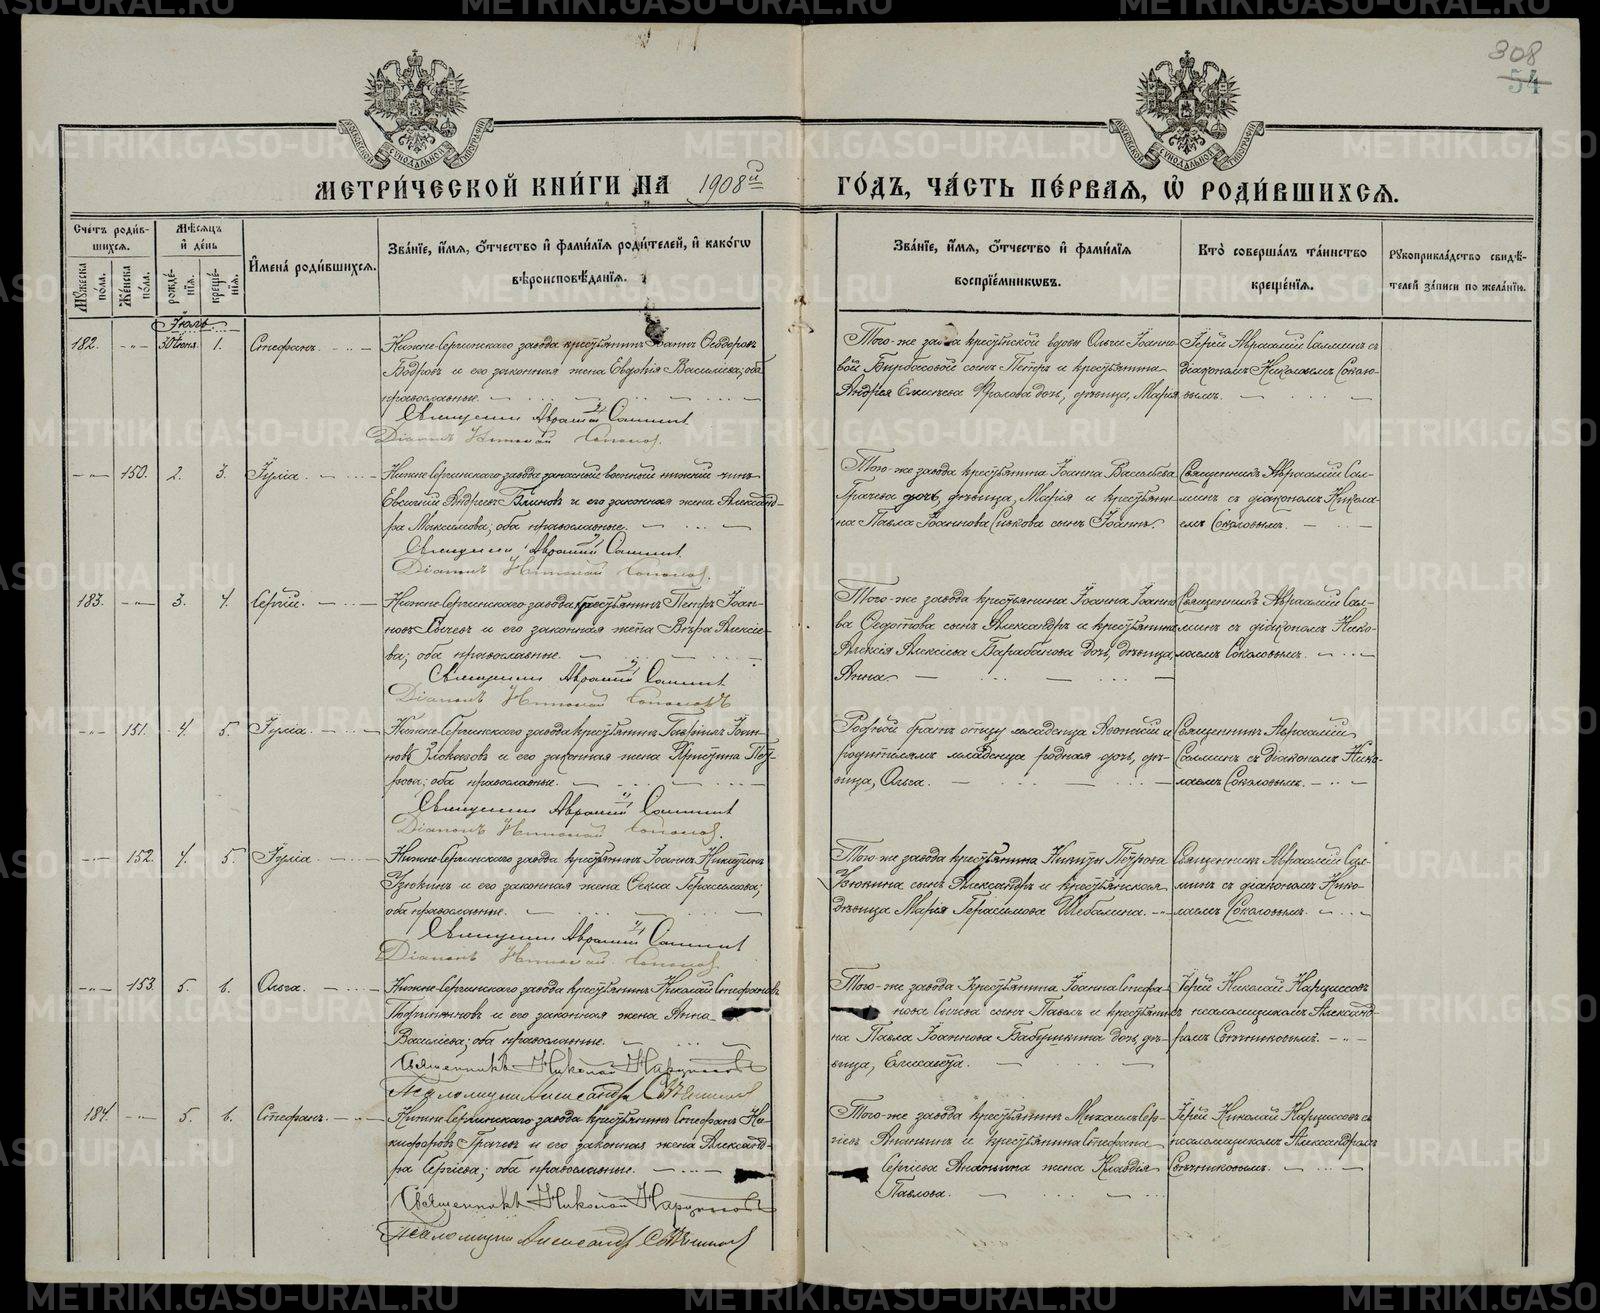 308
54
МЕТРИ́ЧЕСКОЙ КНИ́ГИ НА 1908й
ГО́ДЪ, ЧА́СТЬ ПЕ́РВАЯ, Ѡ҆ РОДИ́ВШИХСЯ.
Сче́тъ роди́в-
шихся.
Мꙋжеска по́ла.
Же́нска по́ла.
Мѣ́сяцъ и҆ де́нь
рожде́нїя.
креще́нїя.
И҆мена̀ роди́вшихся.
Зва́нїе, и҆́мя, ѻ҆́тчество и҆ фами́лїя роди́телей, и҆ како́гѡ
вѣроисповѣ́данїя.
Зва́нїе, и҆́мя, ѻ҆́тчество и҆ фами́лїя
воспрїе́мникѡвъ.
Кто̀ соверша́лъ та́инство
креще́нїя.
Рꙋкоприкла́дство свидѣ́-
телей за́писи по жела́нїю.
Іюль.
182. 30 іюня. 1. Стефанъ.
Нижне-Сергинскаго завода крестьянинъ Іоаннъ Ѳеодоровъ
Бодровъ и его законная жена Евдокія Васильева; оба
православные.
Священникъ Авраамій Салминъ
Діаконъ Николай Соколовъ.
Того-же завода крестьянской вдовы Ольги Іоанно-
вой сынъ Петръ и крестьянина
Андрея Фролова дочь, дѣвица, Марія.
Іерей Авраамій Салминъ съ
діакономъ Николаемъ Соколо-
вымъ.
150. 2. 3. Іулія.
Нижне-Сергинскаго завода запасный военный нижній чинъ
Евгеній Андреевъ Блиновъ и его законная жена Александ-
ра Максимова; оба православные.
Священникъ Авраамій Салминъ
Діаконъ Николай Соколовъ.
Того-же завода крестьянина Іоанна Васильева
Грачева дочь, дѣвица, Марія и крестьяни-
на Павла Іоаннова сынъ Іоаннъ.
Священникъ Авраамій Сал-
минъ съ діакономъ Никола-
емъ Соколовымъ.
183. 3. 4. Сергій.
Нижне-Сергинскаго завода крестьянинъ Петръ Іоан-
новъ Сычевъ и его законная жена Вѣра Алексіе-
ва; оба православные.
Священникъ Авраамій Салминъ
Діаконъ Николай Соколовъ
Того-же завода крестьянина Іоанна Іоанно-
ва Ѳедотова сынъ Александръ и крестьянина
Алексія Алексіева Барабанова дочь, дѣвица,
Анна.
Священникъ Авраамій Сал-
минъ съ діакономъ Нико-
лаемъ Соколовымъ.
151. 4. 5. Іулія.
Нижне-Сергинскаго завода крестьянинъ Гавріилъ Іоан-
новъ Злоказовъ и его законная жена Христина Пет-
рова; оба православные.
Священникъ Авраамій Салминъ
Діаконъ Николай Соколовъ.
Родной братъ отцу младенца и
родителямъ младенца родная дочь, дѣ-
вица, Ольга.
Священникъ Авраамій
Салминъ съ діакономъ Нико-
лаемъ Соколовымъ.
152. 4. 5. Іулія.
Нижне-Сергинскаго завода крестьянинъ Іоаннъ Никитинъ
Узюкинъ и его законная жена Ѳекла Герасимова;
оба православные.
Священникъ Авраамій Салминъ
Діаконъ Николай Соколовъ
Того-же завода крестьянина Никиты Петрова
Узюкина сынъ Александръ и крестьянская
дѣвица Марія Герасимова Шебалина.
Священникъ Авраамій Сал-
минъ съ діакономъ Нико-
лаемъ Соколовымъ.
153. 5. 6. Ольга.
Нижне-Сергинскаго завода крестьянинъ Николай Стефановъ
и его законная жена Анна
Васильева; оба православные.
Священникъ Николай Нарциссовъ
Псаломщикъ Александръ Свѣчниковъ
Того-же завода крестьянина Іоанна Стефа-
нова Сычева сынъ Павелъ и крестьяни-
на Павла Іоаннова Бабушкина дочь, дѣ-
вица, Елисавета.
Іерей Николай Нарциссовъ
съ псаломщикомъ Александ-
ромъ Свѣчниковымъ.
184. 5. 6. Стефанъ.
Нижне-Сергинскаго завода крестьянинъ Стефанъ Ни-
кифоровъ Грачевъ и его законная жена Александ-
ра Сергіева; оба православные.
Священникъ Николай Нарциссовъ
Псаломщикъ Александръ Свѣчниковъ
Того-же завода крестьянинъ Михаилъ Сер-
гіевъ Ананьинъ и крестьянина Стефана
Сергіева Ананьина жена Клавдія
Павлова.
Іерей Николай Нарциссовъ съ
псаломщикомъ Александромъ
Свѣчниковымъ.
METRIKI.GASO-URAL.RU